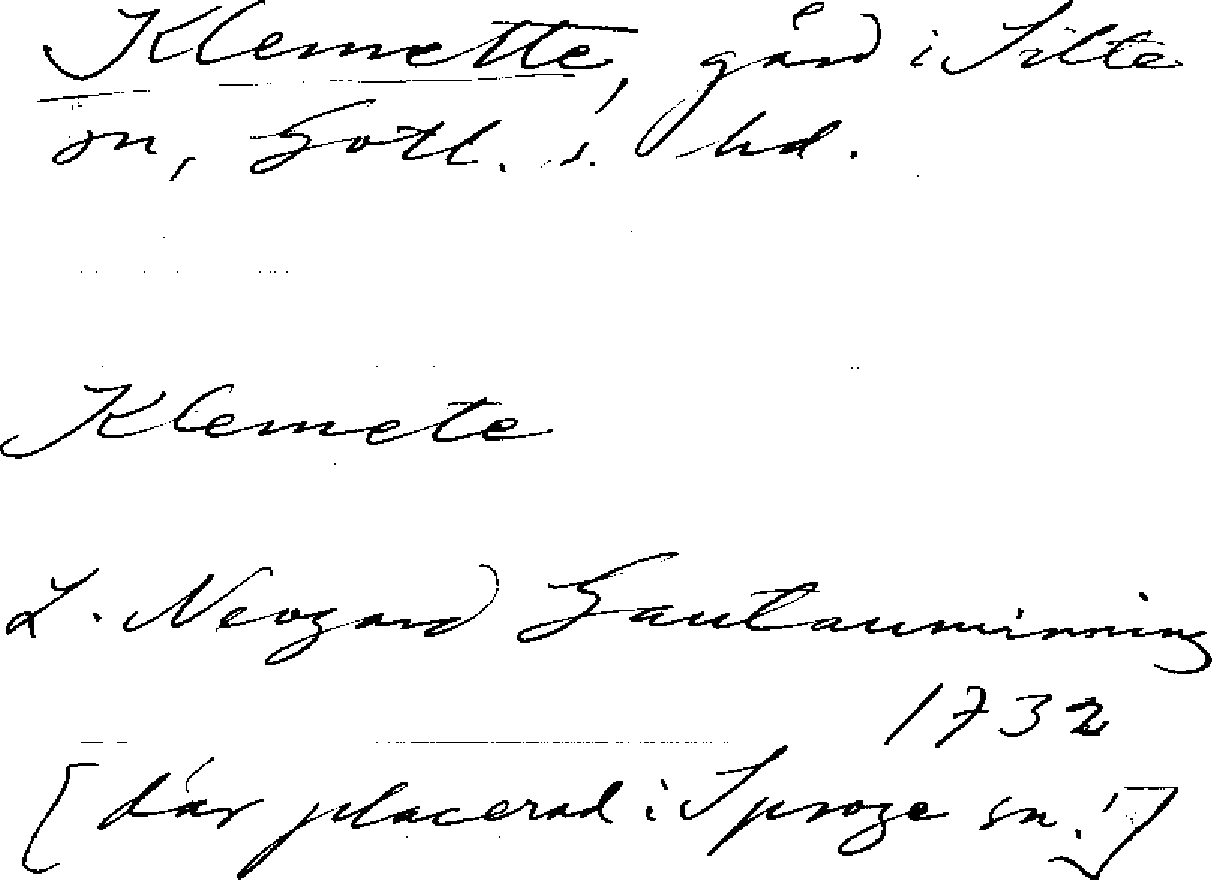 Klemette, gård i Silte
sn, Gotl. s. hd.
Klemete
L. Neogard Gautauminning
1732
[där placerad i Sproge sn.!]